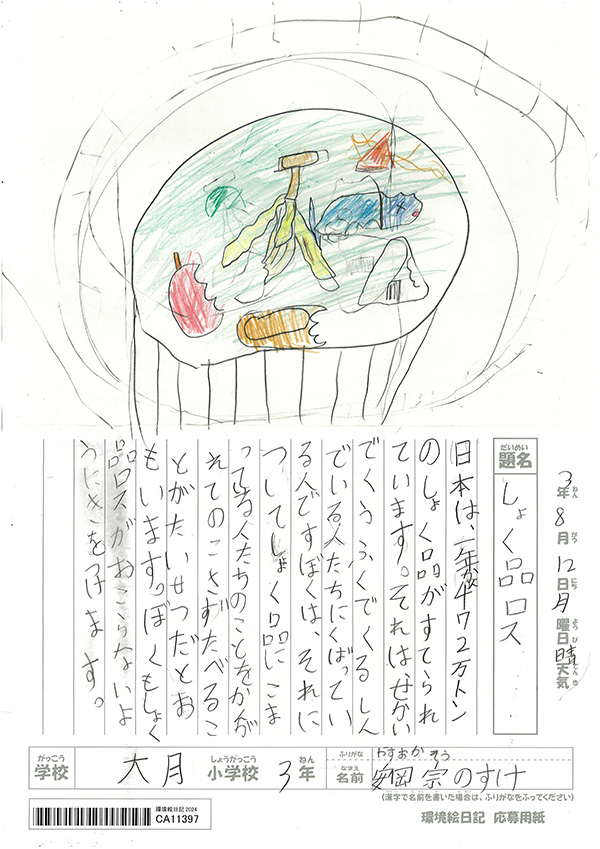 3年8月12日月曜日晴天気
ねん
がつ
にち
ようび
てんき
だいめい
題名
しょく品ロス
日本は、一年が472万トン
のしょく品がすてられ
ています。それは、せかい
でくうふくでくるしん
でいる人たちにくばってい
る人ですぼくは、それに
つしてしょく品にこま
ってる人たちのことをかんが
えてのこさずたべるこ
とがたいせつだとお
もいます。ぼくもしょく
品ロスがおこらないよ
うにきをつけます。
がっこう
学校
大月
しょうがっこう
小学校
3年
ねん
ふりがな
やすおか そう
なまえ
名前
安岡 宗のすけ
(漢字で名前を書いた場合は、ふりがなをふってください)
環境絵日記2024
CA11397
環境絵日記 応募用紙